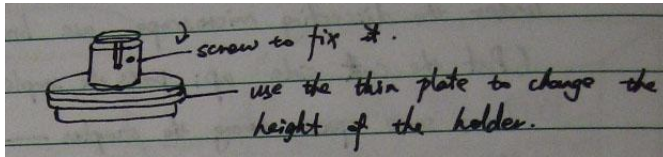 screw to fix it.
use the thin plate to change the
height of the holder.